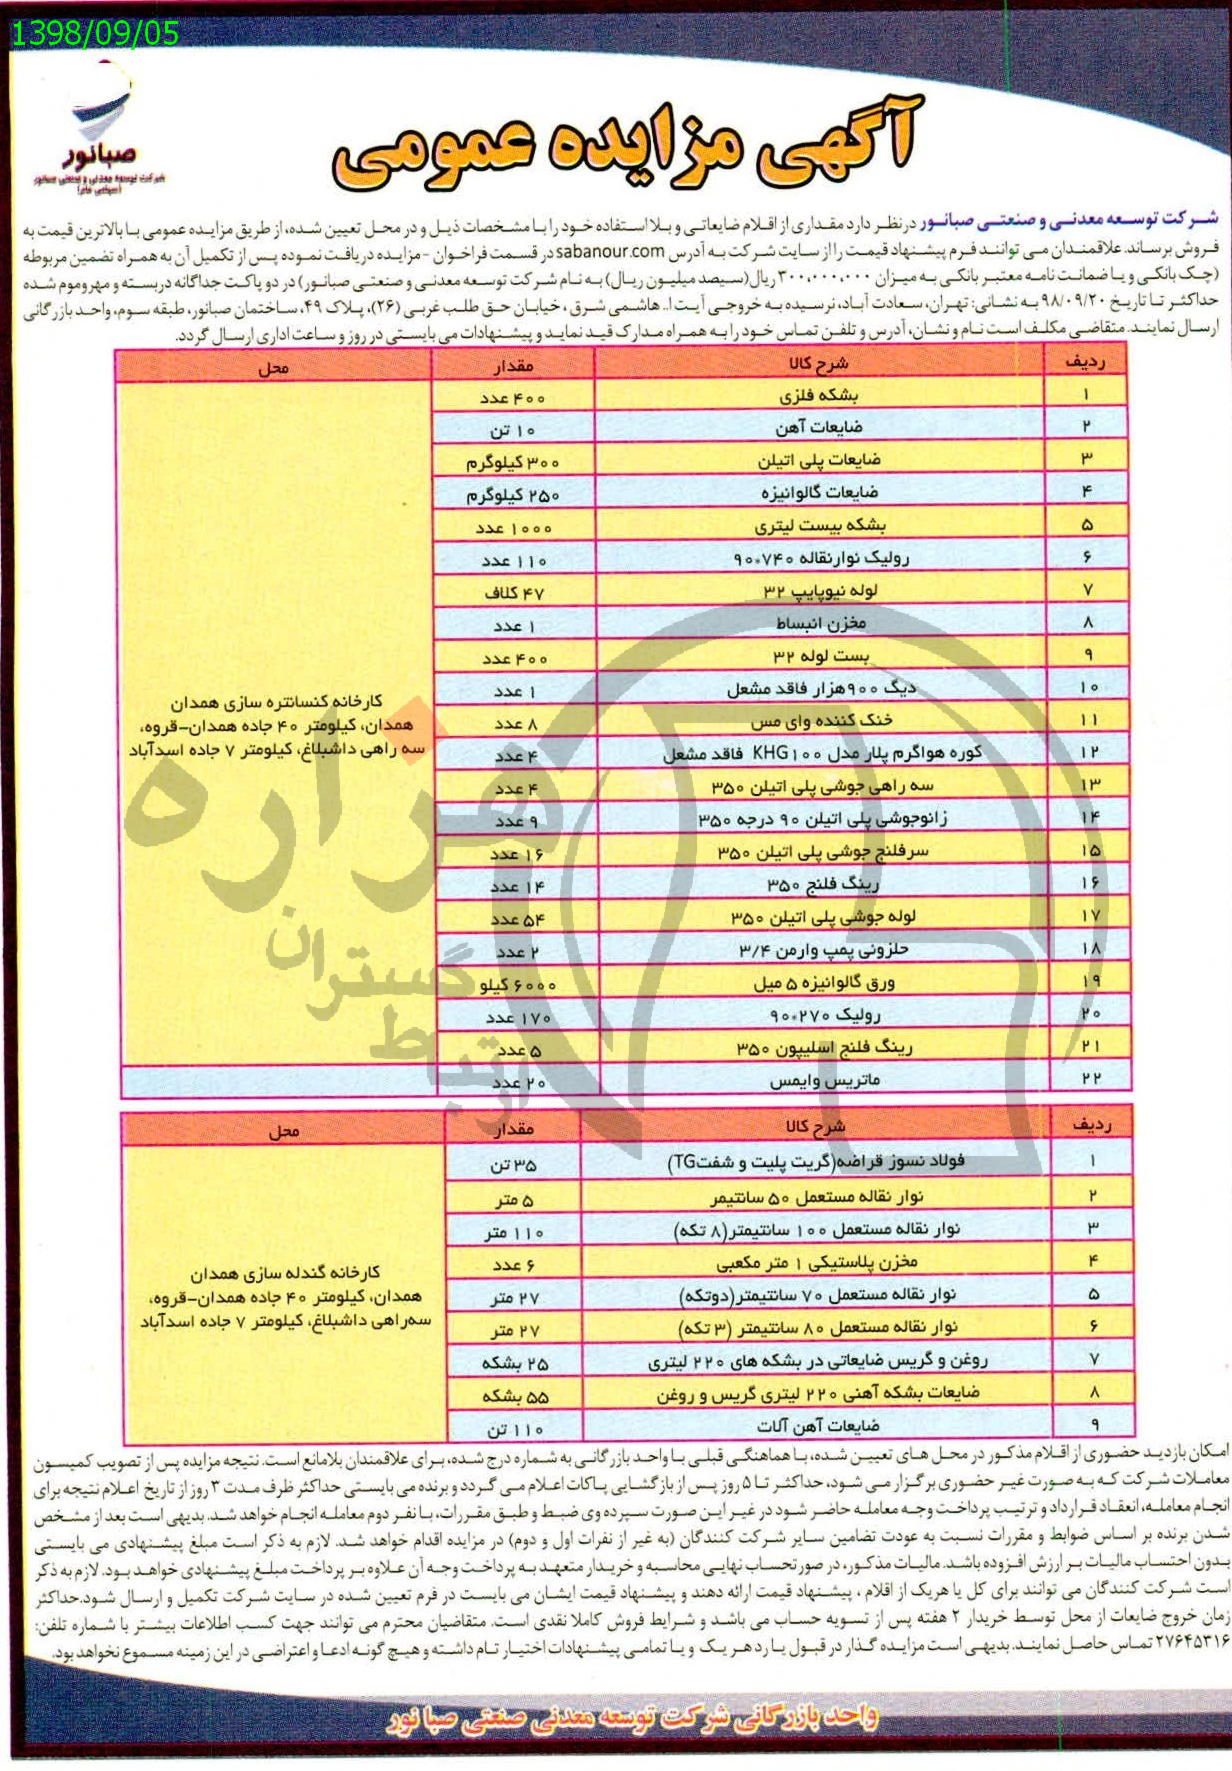 1398/09/05
صبانور
شرکت توسعه معدنی و صنعتی صبانور
(سهامی عام)
آگهی مزایده عمومی
شرکت توسعه معدنی و صنعتی صبانور درنظر دارد مقداری از اقلام ضایعاتی و بلااستفاده خود را با مشخصات ذیل و در محل تعیین شده، از طریق مزایده عمومی با بالاترین قیمت به
فروش برساند. علاقمندان می توانند فرم پیشنهاد قیمت را از سایت شرکت به آدرس sabanour.com در قسمت فراخوان - مزایده دریافت نموده پس از تکمیل آن به همراه تضمین مربوطه
(چک بانکی و یا ضمانت نامه معتبر بانکی به میزان ۳۰۰،۰۰۰،۰۰۰ ریال(سیصد میلیون ریال) به نام شرکت توسعه معدنی و صنعتی صبانور) در دو پاکت جداگانه دربسته و مهروموم شده
حداکثر تا تاریخ ۹۸/۰۹/۲۰ به نشانی: تهران، سعادت آباد، نرسیده به خروجی آیت ا.. هاشمی شرق، خیابان حق طلب غربی (۲۶)، پلاک ۴۹، ساختمان صبانور، طبقه سوم، واحد بازرگانی
ارسال نمایند. متقاضی مکلف است نام و نشان، آدرس و تلفن تماس خود را به همراه مدارک قید نماید و پیشنهادات می بایستی در روز و ساعت اداری ارسال گردد.
ردیف شرح کالا مقدار محل
۱ بشکه فلزی ۴۰۰ عدد
۲ ضایعات آهن ۱۰ تن
۳ ضایعات پلی اتیلن ۳۰۰ کیلوگرم
۴ ضایعات گالوانیزه ۲۵۰ کیلوگرم
۵ بشکه بیست لیتری ۱۰۰۰ عدد
۶ رولیک نوارنقاله ۷۴۰*۹۰ ۱۱۰ عدد
۷ لوله نیوپایپ ۳۲ ۴۷ کلاف
۸ مخزن انبساط ۱ عدد
۹ بست لوله ۳۲ ۴۰۰ عدد
۱۰ دیگ ۹۰۰هزار فاقد مشعل ۱ عدد
۱۱ خنک کننده وای مس ۸ عدد
۱۲ کوره هواگرم پلار مدل KHG۱۰۰ فاقد مشعل ۴ عدد
۱۳ سه راهی جوشی پلی اتیلن ۳۵۰ ۴ عدد
۱۴ زانوجوشی پلی اتیلن ۹۰ درجه ۳۵۰ ۹ عدد
۱۵ سرفلنج جوشی پلی اتیلن ۳۵۰ ۱۶ عدد
۱۶ رینگ فلنج ۳۵۰ ۱۴ عدد
۱۷ لوله جوشی پلی اتیلن ۳۵۰ ۵۴ عدد
۱۸ حلزونی پمپ وارمن ۳/۴ ۲ عدد
۱۹ ورق گالوانیزه ۵ میل ۶۰۰۰ کیلو
۲۰ رولیک ۲۷۰*۹۰ ۱۷۰ عدد
۲۱ رینگ فلنج اسلیپون ۳۵۰ ۵ عدد
۲۲ ماتریس وایمس ۲۰ عدد
کارخانه کنسانتره سازی همدان
همدان، کیلومتر ۴۰ جاده همدان-قروه،
سه راهی داشبلاغ، کیلومتر ۷ جاده اسدآباد
هزاره
گستران
ارتباط
ردیف شرح کالا مقدار محل
۱ فولاد نسوز قراضه(گریت پلیت و شفتTG) ۳۵ تن
۲ نوار نقاله مستعمل ۵۰ سانتیمر ۵ متر
۳ نوار نقاله مستعمل ۱۰۰ سانتیمتر(۸ تکه) ۱۱۰ متر
۴ مخزن پلاستیکی ۱ متر مکعبی ۶ عدد
۵ نوار نقاله مستعمل ۷۰ سانتیمتر(دوتکه) ۲۷ متر
۶ نوار نقاله مستعمل ۸۰ سانتیمتر (۳ تکه) ۲۷ متر
۷ روغن و گریس ضایعاتی در بشکه های ۲۲۰ لیتری ۲۵ بشکه
۸ ضایعات بشکه آهنی ۲۲۰ لیتری گریس و روغن ۵۵ بشکه
۹ ضایعات آهن آلات ۱۱۰ تن
کارخانه گندله سازی همدان
همدان، کیلومتر ۴۰ جاده همدان-قروه،
سه‌راهی داشبلاغ، کیلومتر ۷ جاده اسدآباد
امکان بازدید حضوری از اقلام مذکور در محل های تعیین شده، با هماهنگی قبلی با واحد بازرگانی به شماره درج شده، برای علاقمندان بلامانع است. نتیجه مزایده پس از تصویب کمیسون
معاملات شرکت که به صورت غیر حضوری برگزار می شود، حداکثر تا ۵ روز پس از بازگشایی پاکات اعلام می گردد و برنده می بایستی حداکثر ظرف مدت ۳ روز از تاریخ اعلام نتیجه برای
انجام معامله، انعقاد قرارداد و ترتیب پرداخت وجه معامله حاضر شود در غیر این صورت سپرده وی ضبط و طبق مقررات، با نفر دوم معامله انجام خواهد شد. بدیهی است بعد از مشخص
شدن برنده بر اساس ضوابط و مقررات نسبت به عودت تضامین سایر شرکت کنندگان (به غیر از نفرات اول و دوم) در مزایده اقدام خواهد شد. لازم به ذکر است مبلغ پیشنهادی می بایستی
بدون احتساب مالیات بر ارزش افزوده باشد. مالیات مذکور، در صورتحساب نهایی محاسبه و خریدار متعهد به پرداخت وجه آن علاوه بر پرداخت مبلغ پیشنهادی خواهد بود. لازم به ذکر
است شرکت کنندگان می توانند برای کل یا هریک از اقلام ، پیشنهاد قیمت ارائه دهند و پیشنهاد قیمت ایشان می بایست در فرم تعیین شده در سایت شرکت تکمیل و ارسال شود.حداکثر
زمان خروج ضایعات از محل توسط خریدار ۲ هفته پس از تسویه حساب می باشد و شرایط فروش کاملا نقدی است. متقاضیان محترم می توانند جهت کسب اطلاعات بیشتر با شماره تلفن:
۲۷۶۴۵۳۱۶ تماس حاصل نمایند. بدیهی است مزایده گذار در قبول یا رد هر یک و یا تمامی پیشنهادات اختیار تام داشته و هیچ گونه ادعا و اعتراضی در این زمینه مسموع نخواهد بود.
واحد بازرگانی شرکت توسعه معدنی صنعتی صبا نور